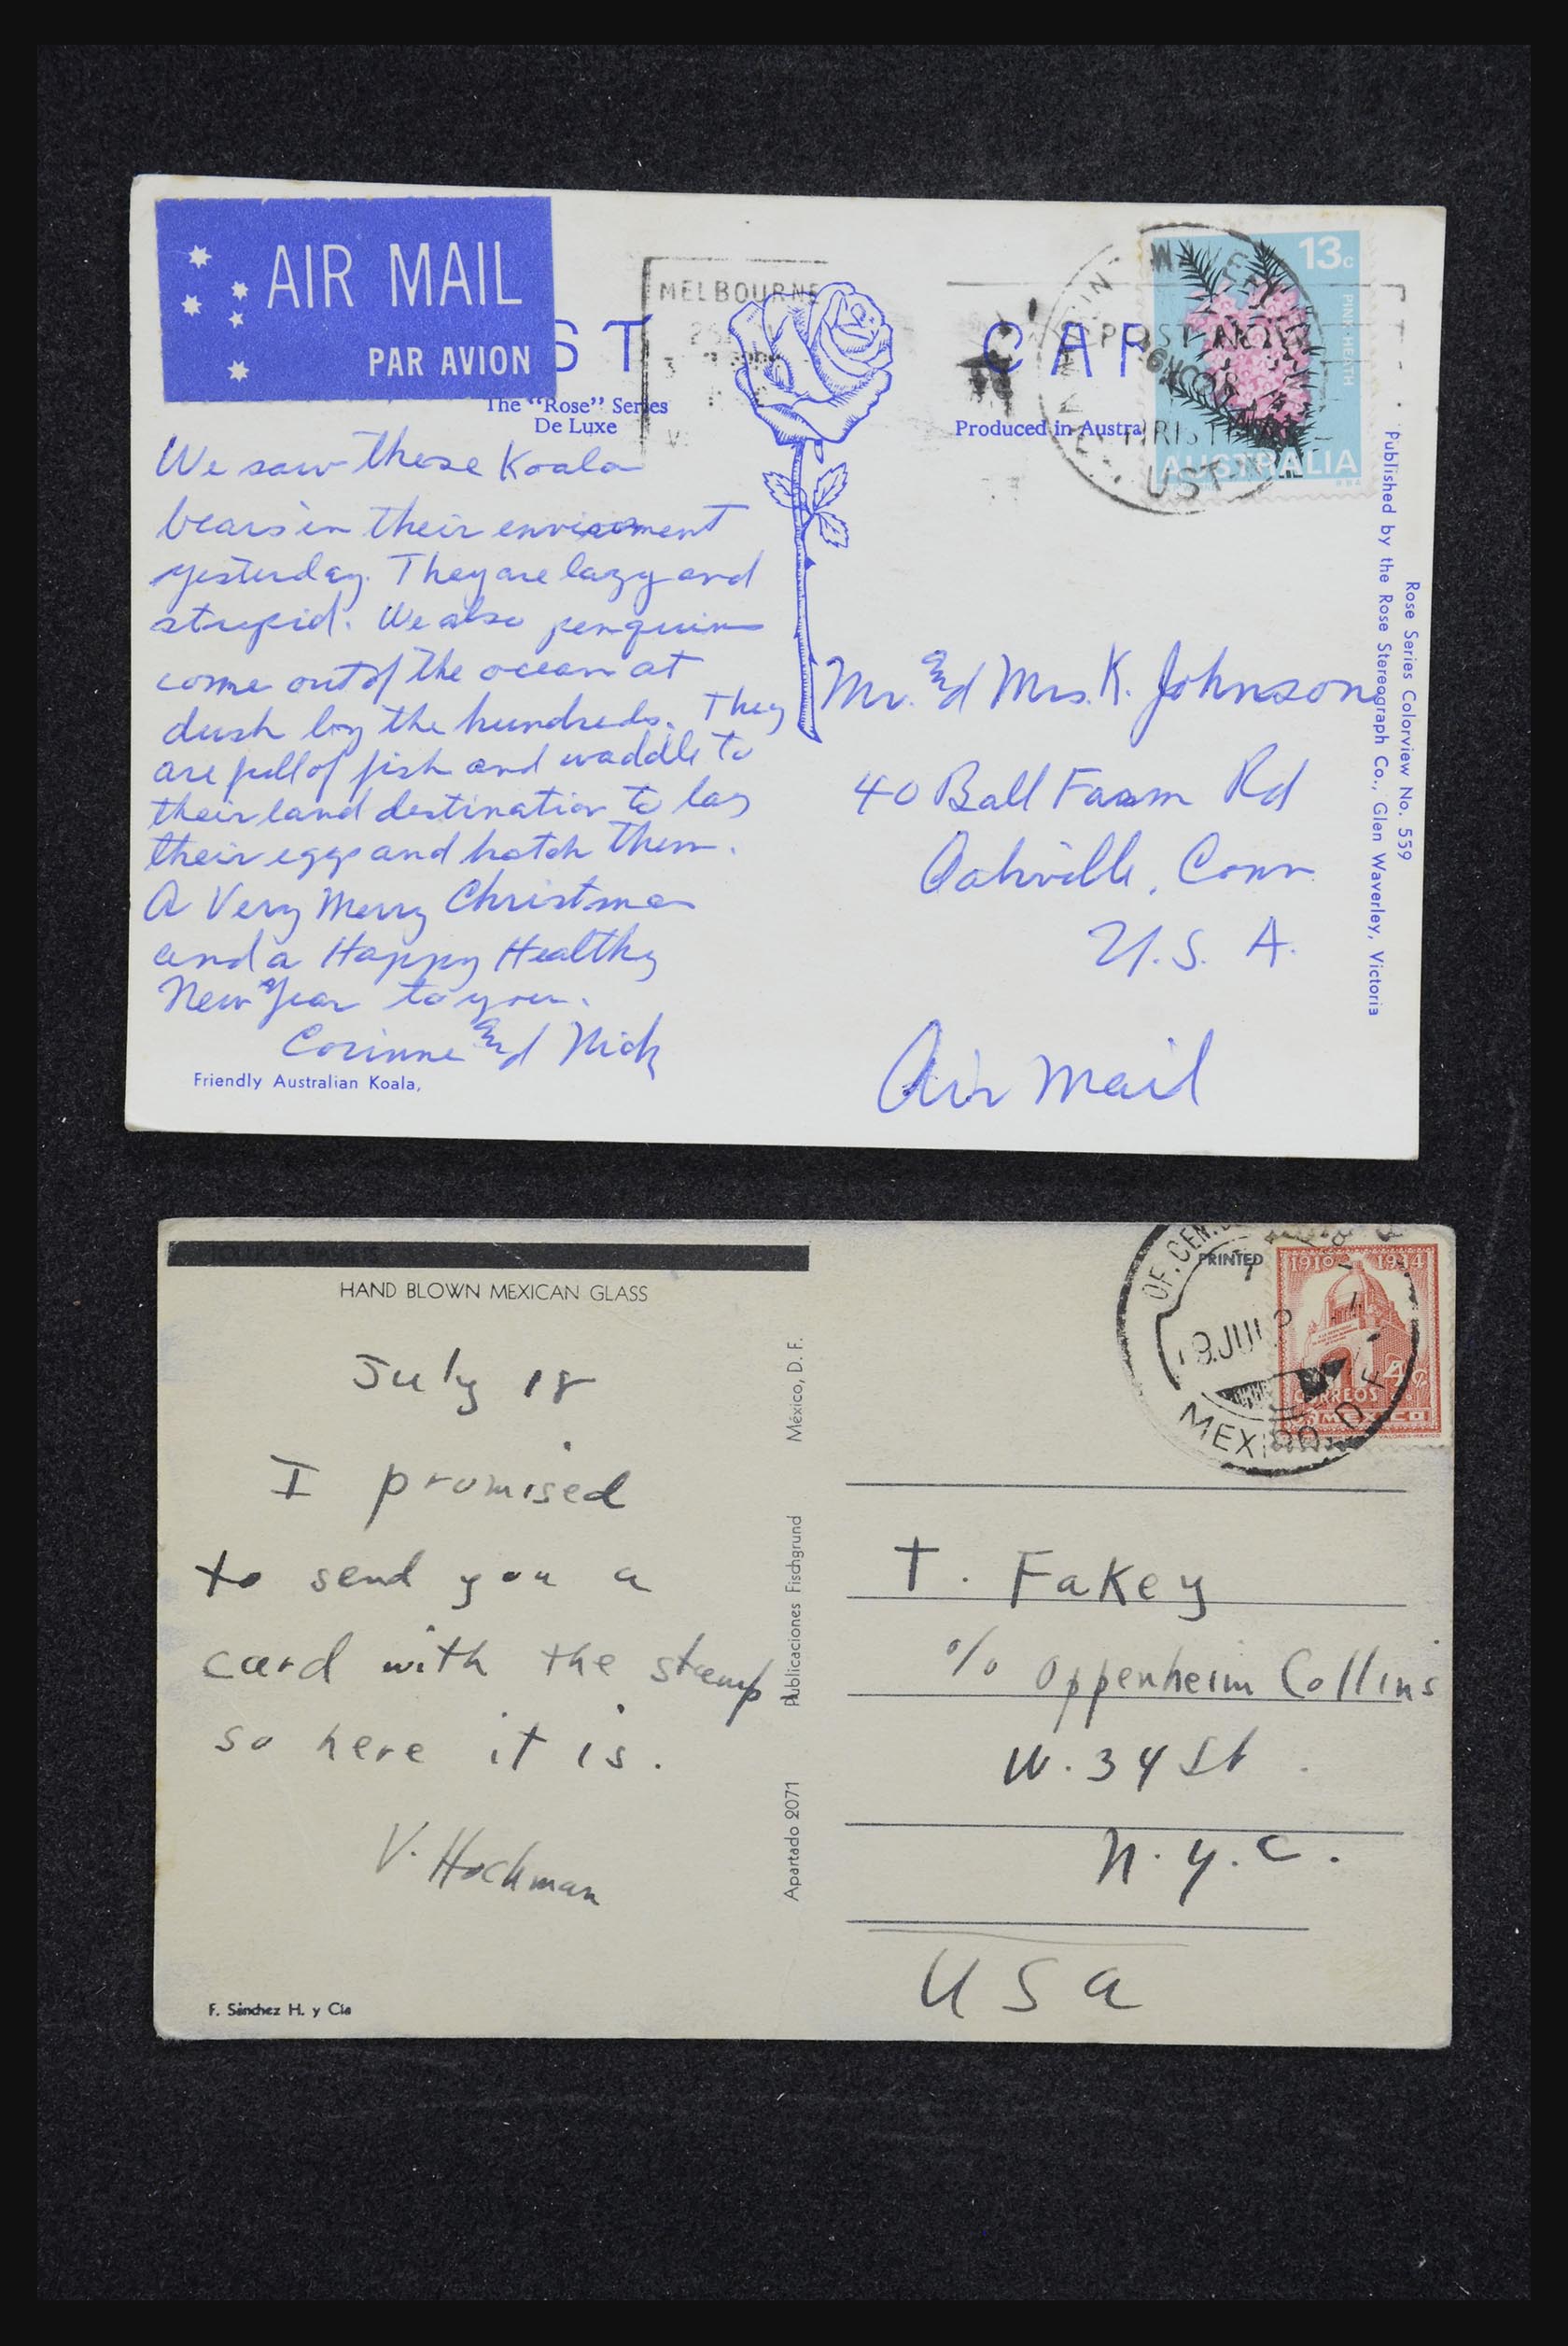 AIR MAIL
PAR AVION
ST
CAR
MELBOURNE
The "Rose" Series
De Luxe
Produced in Austra
13c
PINK HEATH
AUSTRALIA
We saw these Koala
bears in their enviroment
yesterday. They are lazy and
strupid. We also penguins
come out of the ocean at
dush by the hundreds. They
are full of fish and waddle to
their land destination to lay
their eggs and hatch them.
A Very Merry Christmas
and a Happy Healthy
New Year to you.
Corinne and Nick
Friendly Australian Koala,
Mr. and Mrs. K. Johnson
40 Ball Farm Rd
Oakville, Conn
U.S.A.
Air Mail
Rose Series Colorview No. 559
Published by the Rose Stereograph Co., Glen Waverley, Victoria
HAND BLOWN MEXICAN GLASS
PRINTED
OF. CEN.
JUL
MEXICO, D. F.
1910 1934
4c
CORREOS
MEXICO
July 18
I promised
to send you a
card with the stamp
so here it is.
V. Hochman
F. Sánchez H. y Cía
Apartado 2071 Publicaciones Fischgrund México, D. F.
T. Fakey
% Oppenheim Collins
W. 34 St.
N.Y.C.
USA